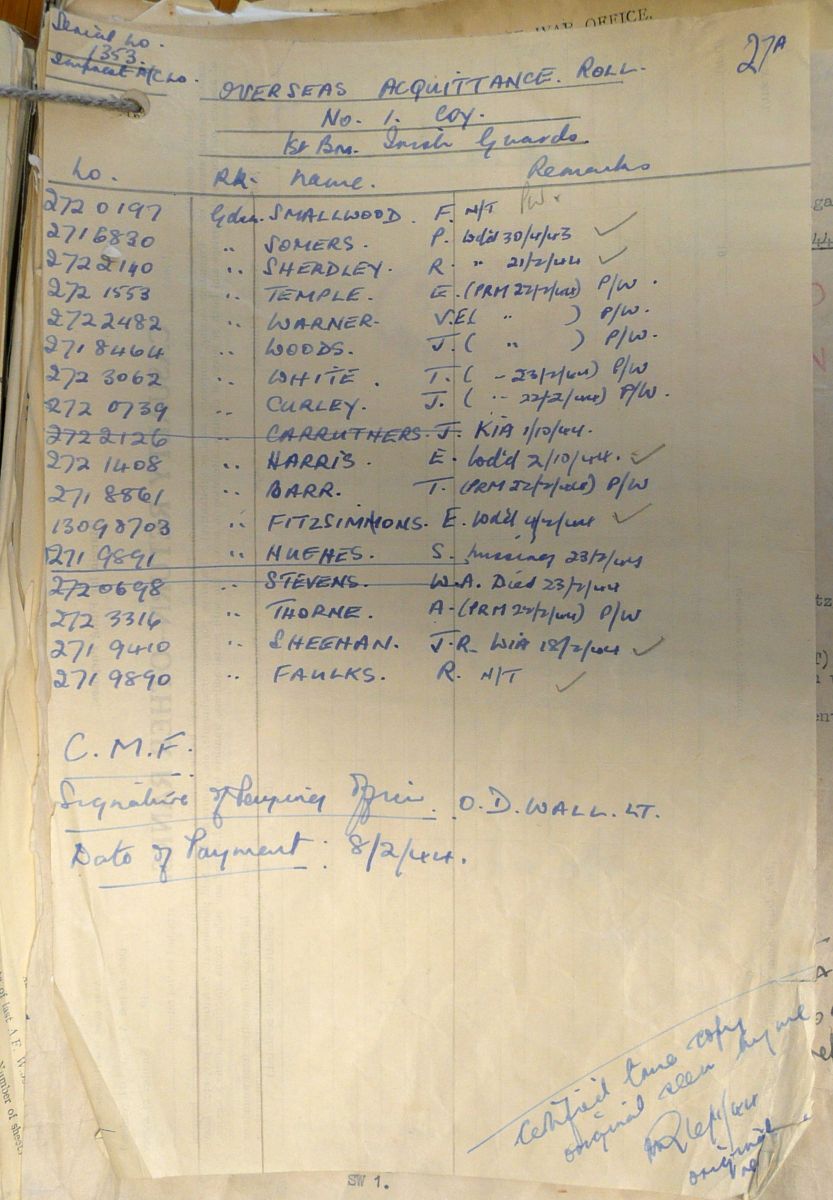 WAR OFFICE.
27A
Serial No.
1353.
Imprest A/C No.
OVERSEAS ACQUITTANCE. ROLL.
No. 1. COY.
1st Bn. Irish Guards
No. RK. Name. Remarks
272 0197 Gdsn. SMALLWOOD. F. N/T PW.
2716830 " SOMERS. P. Wd'd 30/4/43 ✓
2722140 " SHERDLEY. R. " 21/2/44 ✓
272 1553 " TEMPLE. E. (PRM 22/2/44) P/W.
2722482 " WARNER. V.E( " ) P/W.
271 8464 " WOODS. J. ( " ) P/W.
272 3062 " WHITE. T. ( " 23/2/44) P/W
272 0739 " CURLEY. J. ( " 22/2/44) P/W.
272 2126 " CARRUTHERS. J. KIA 1/10/44.
272 1408 " HARRIS. E. Wd'd 2/10/44. ✓
271 8861 " BARR. T. (PRM 22/2/44) P/W
13098703 " FITZSIMMONS. E. Wd'd 4/2/44 ✓
271 9891 " HUGHES. S. Missing 23/2/44
2720698 " STEVENS. W.A. Died 23/2/44
272 3316 " THORNE. A. (PRM 22/2/44) P/W
271 9410 " SHEEHAN. J.R. WIA 18/2/44 ✓
271 9890 " FAULKS. R. N/T ✓
C.M.F.
Signature of Paying Officer. O.D. WALL. LT.
Date of Payment: 8/2/44.
Certified true copy
original seen by me
original
SW 1.
of last A.F. W.
Number of sheet